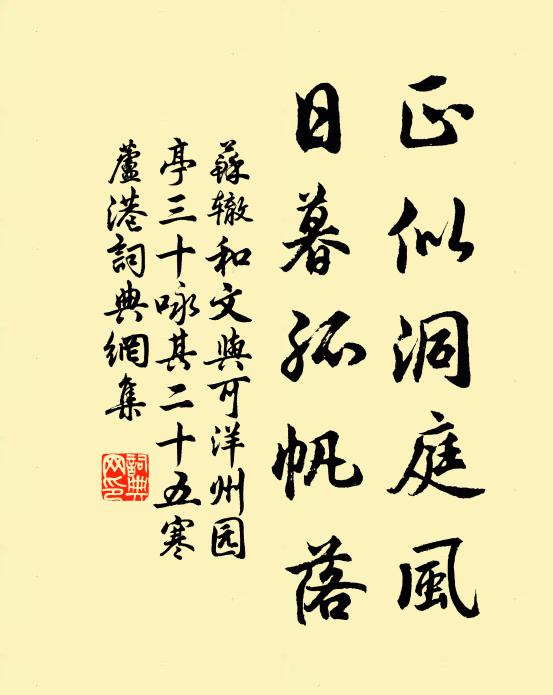 正似洞庭風
日暮孤帆落
蘇辙和文與可洋州园
亭三十咏其二十五寒
蘆港詞典網集
詞典
网印